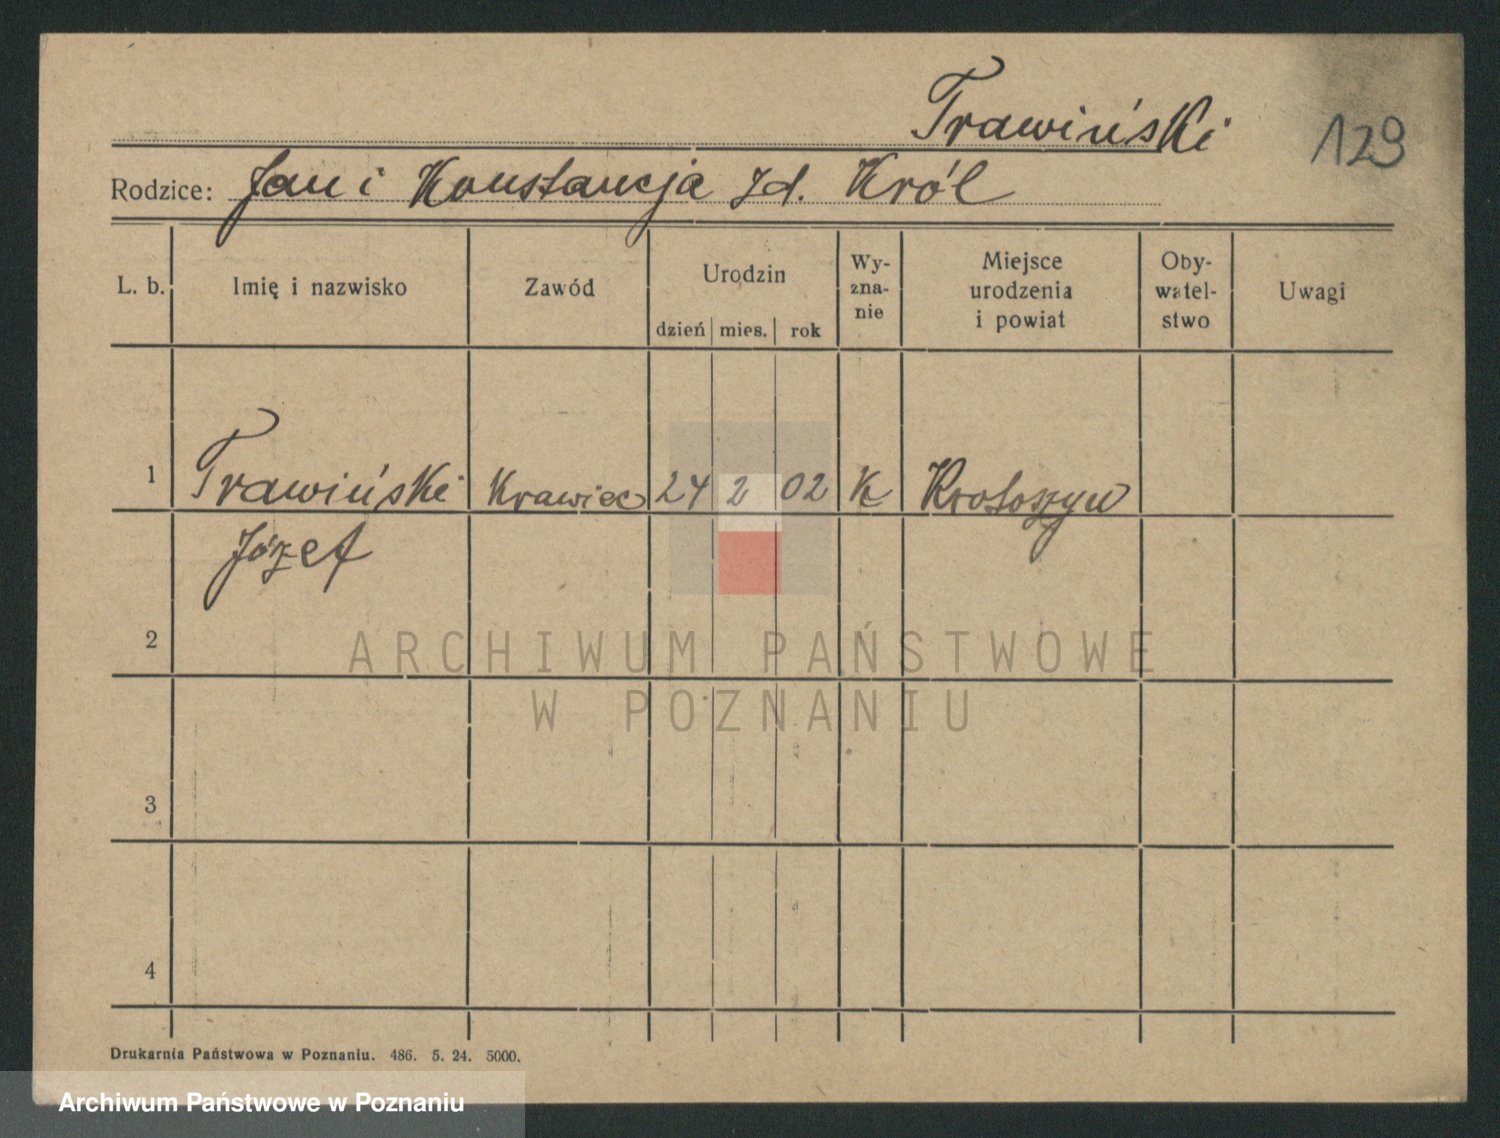 Trawiński
129
Rodzice: Jan i Konstancja zd. Król
L. b. Imię i nazwisko Zawód Urodzin dzień mies. rok Wy-zna-nie Miejsce urodzenia i powiat Oby-watel-stwo Uwagi
1 Trawiński Krawiec 24 2 02 K Krotoszyn
Józef
2
ARCHIWUM PAŃSTWOWE
W POZNANIU
3
4
Drukarnia Państwowa w Poznaniu. 486. 5. 24. 5000.
Archiwum Państwowe w Poznaniu